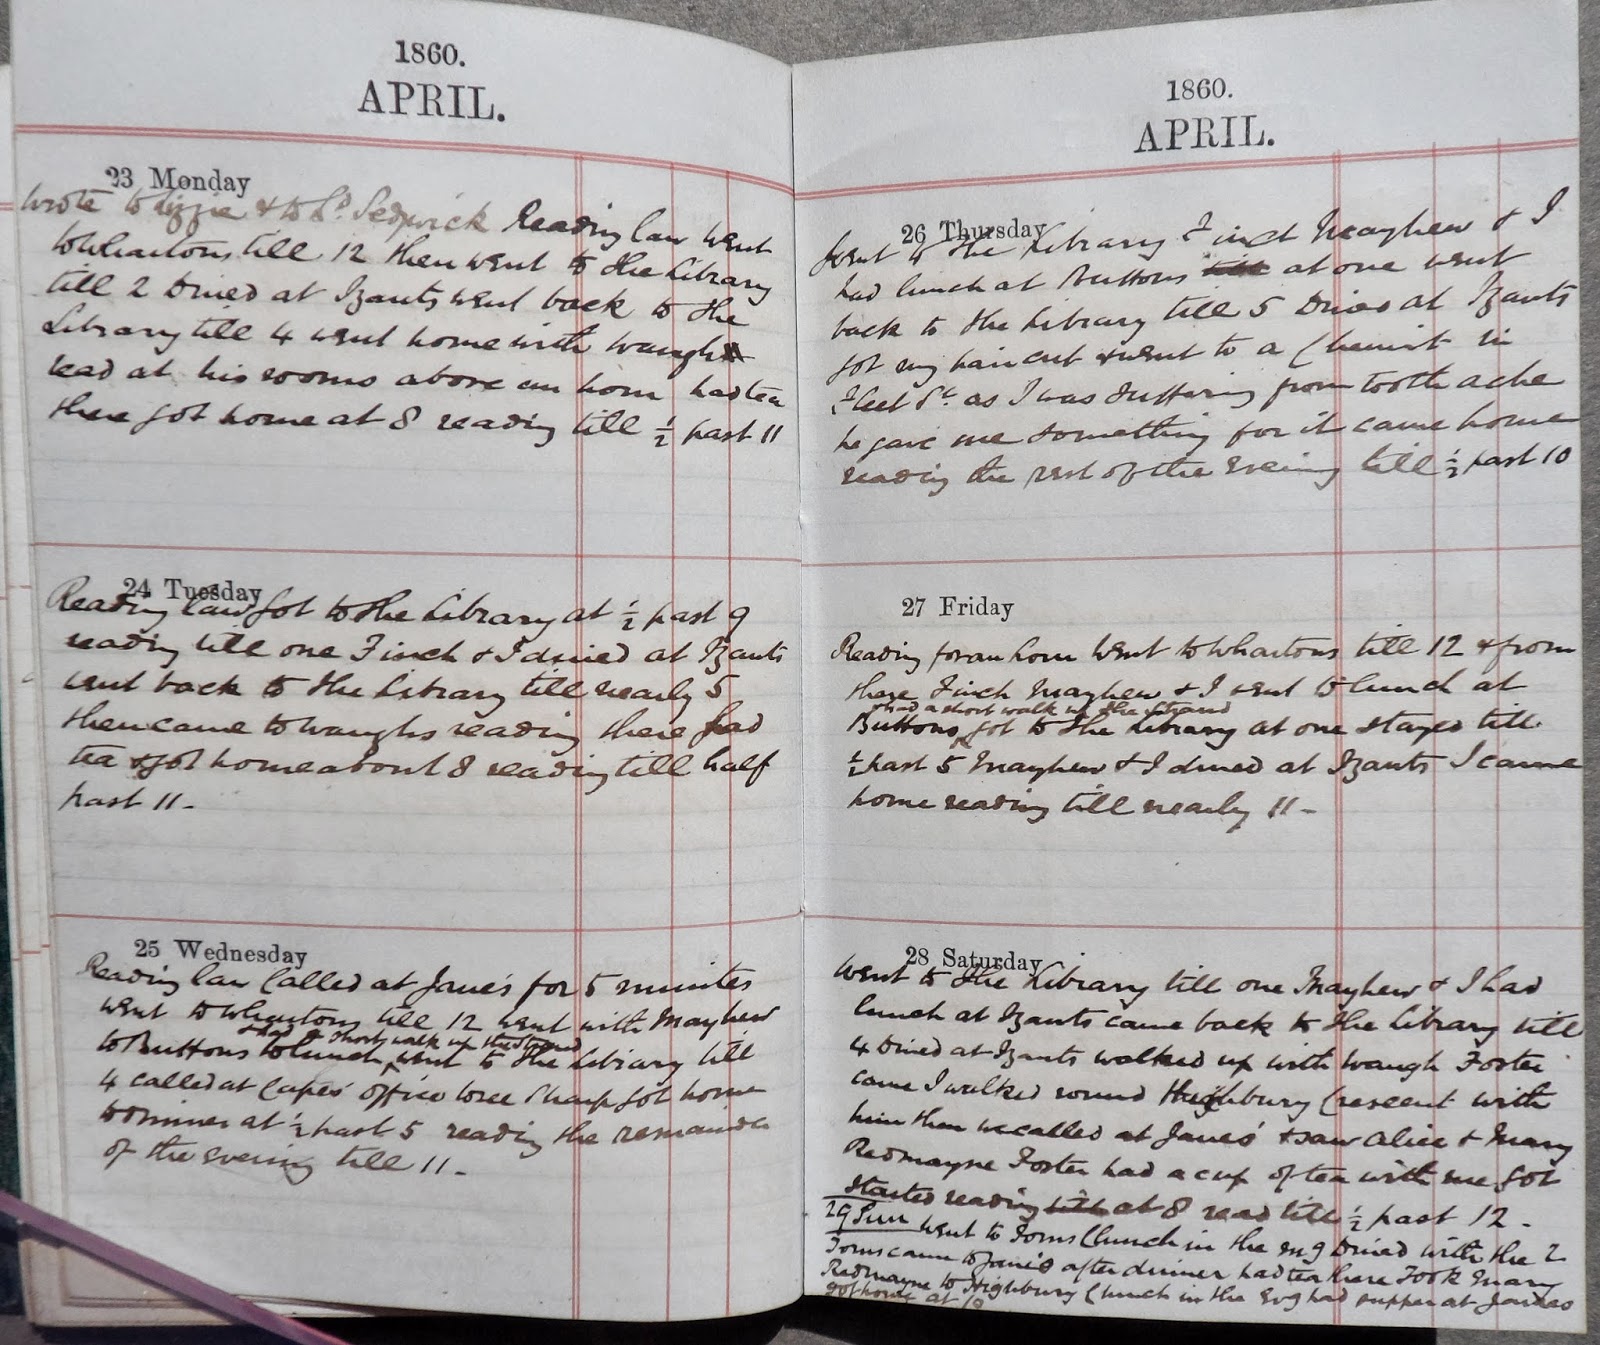 1860.
APRIL.
23 Monday
Wrote to Lizzie & to Ld. Sedgwick Reading law went
to Whartons till 12 then went to the Library
till 2 Dined at Izants went back to the
Library till 4 went home with Waugh
read at his rooms above an hour had tea
there got home at 8 reading till ½ past 11
24 Tuesday
Reading law got to the Library at ½ past 9
reading till one Finch & I dined at Izants
went back to the Library till nearly 5
then came to Waughs reading there had
tea & got home about 8 reading till half
past 11 -
25 Wednesday
Reading law Called at Jane's for 5 minutes
went to Whartons till 12 went with Mayhew
& had a short walk up the Strand
to Buttons to lunch, went to the Library till
4 called at Capes' office to see Sharp got home
to dinner at ½ past 5 reading the remainder
of the evening till 11 -
1860.
APRIL.
26 Thursday
Went to the Library Finch Mayhew & I
had lunch at Buttons at one went
back to the Library till 5 Dined at Izants
got my hair cut & went to a Chemist in
Fleet St. as I was suffering from tooth ache
he gave me something for it came home
reading the rest of the evening till ½ past 10
27 Friday
Reading for an hour Went to Whartons till 12 & from
there Finch Mayhew & I went to lunch at
& had a short walk up the Strand
Buttons, got to the Library at one stayed till
½ past 5 Mayhew & I dined at Izants I came
home reading till nearly 11 -
28 Saturday
Went to the Library till one Mayhew & I had
lunch at Izants came back to the Library till
4 Dined at Izants walked up with Waugh Foster
came I walked round Highbury Crescent with
him then we called at Janes' & saw Alice & Mary
Redmayne Foster had a cup of tea with me got
started reading till at 8 read till ½ past 12 -
29 Sun Went to Toms Church in the mg Dined with the 2
Toms came to Jane's after dinner had tea there Took Mary
Redmayne to Highbury Church in the Evg had supper at
got home at 10